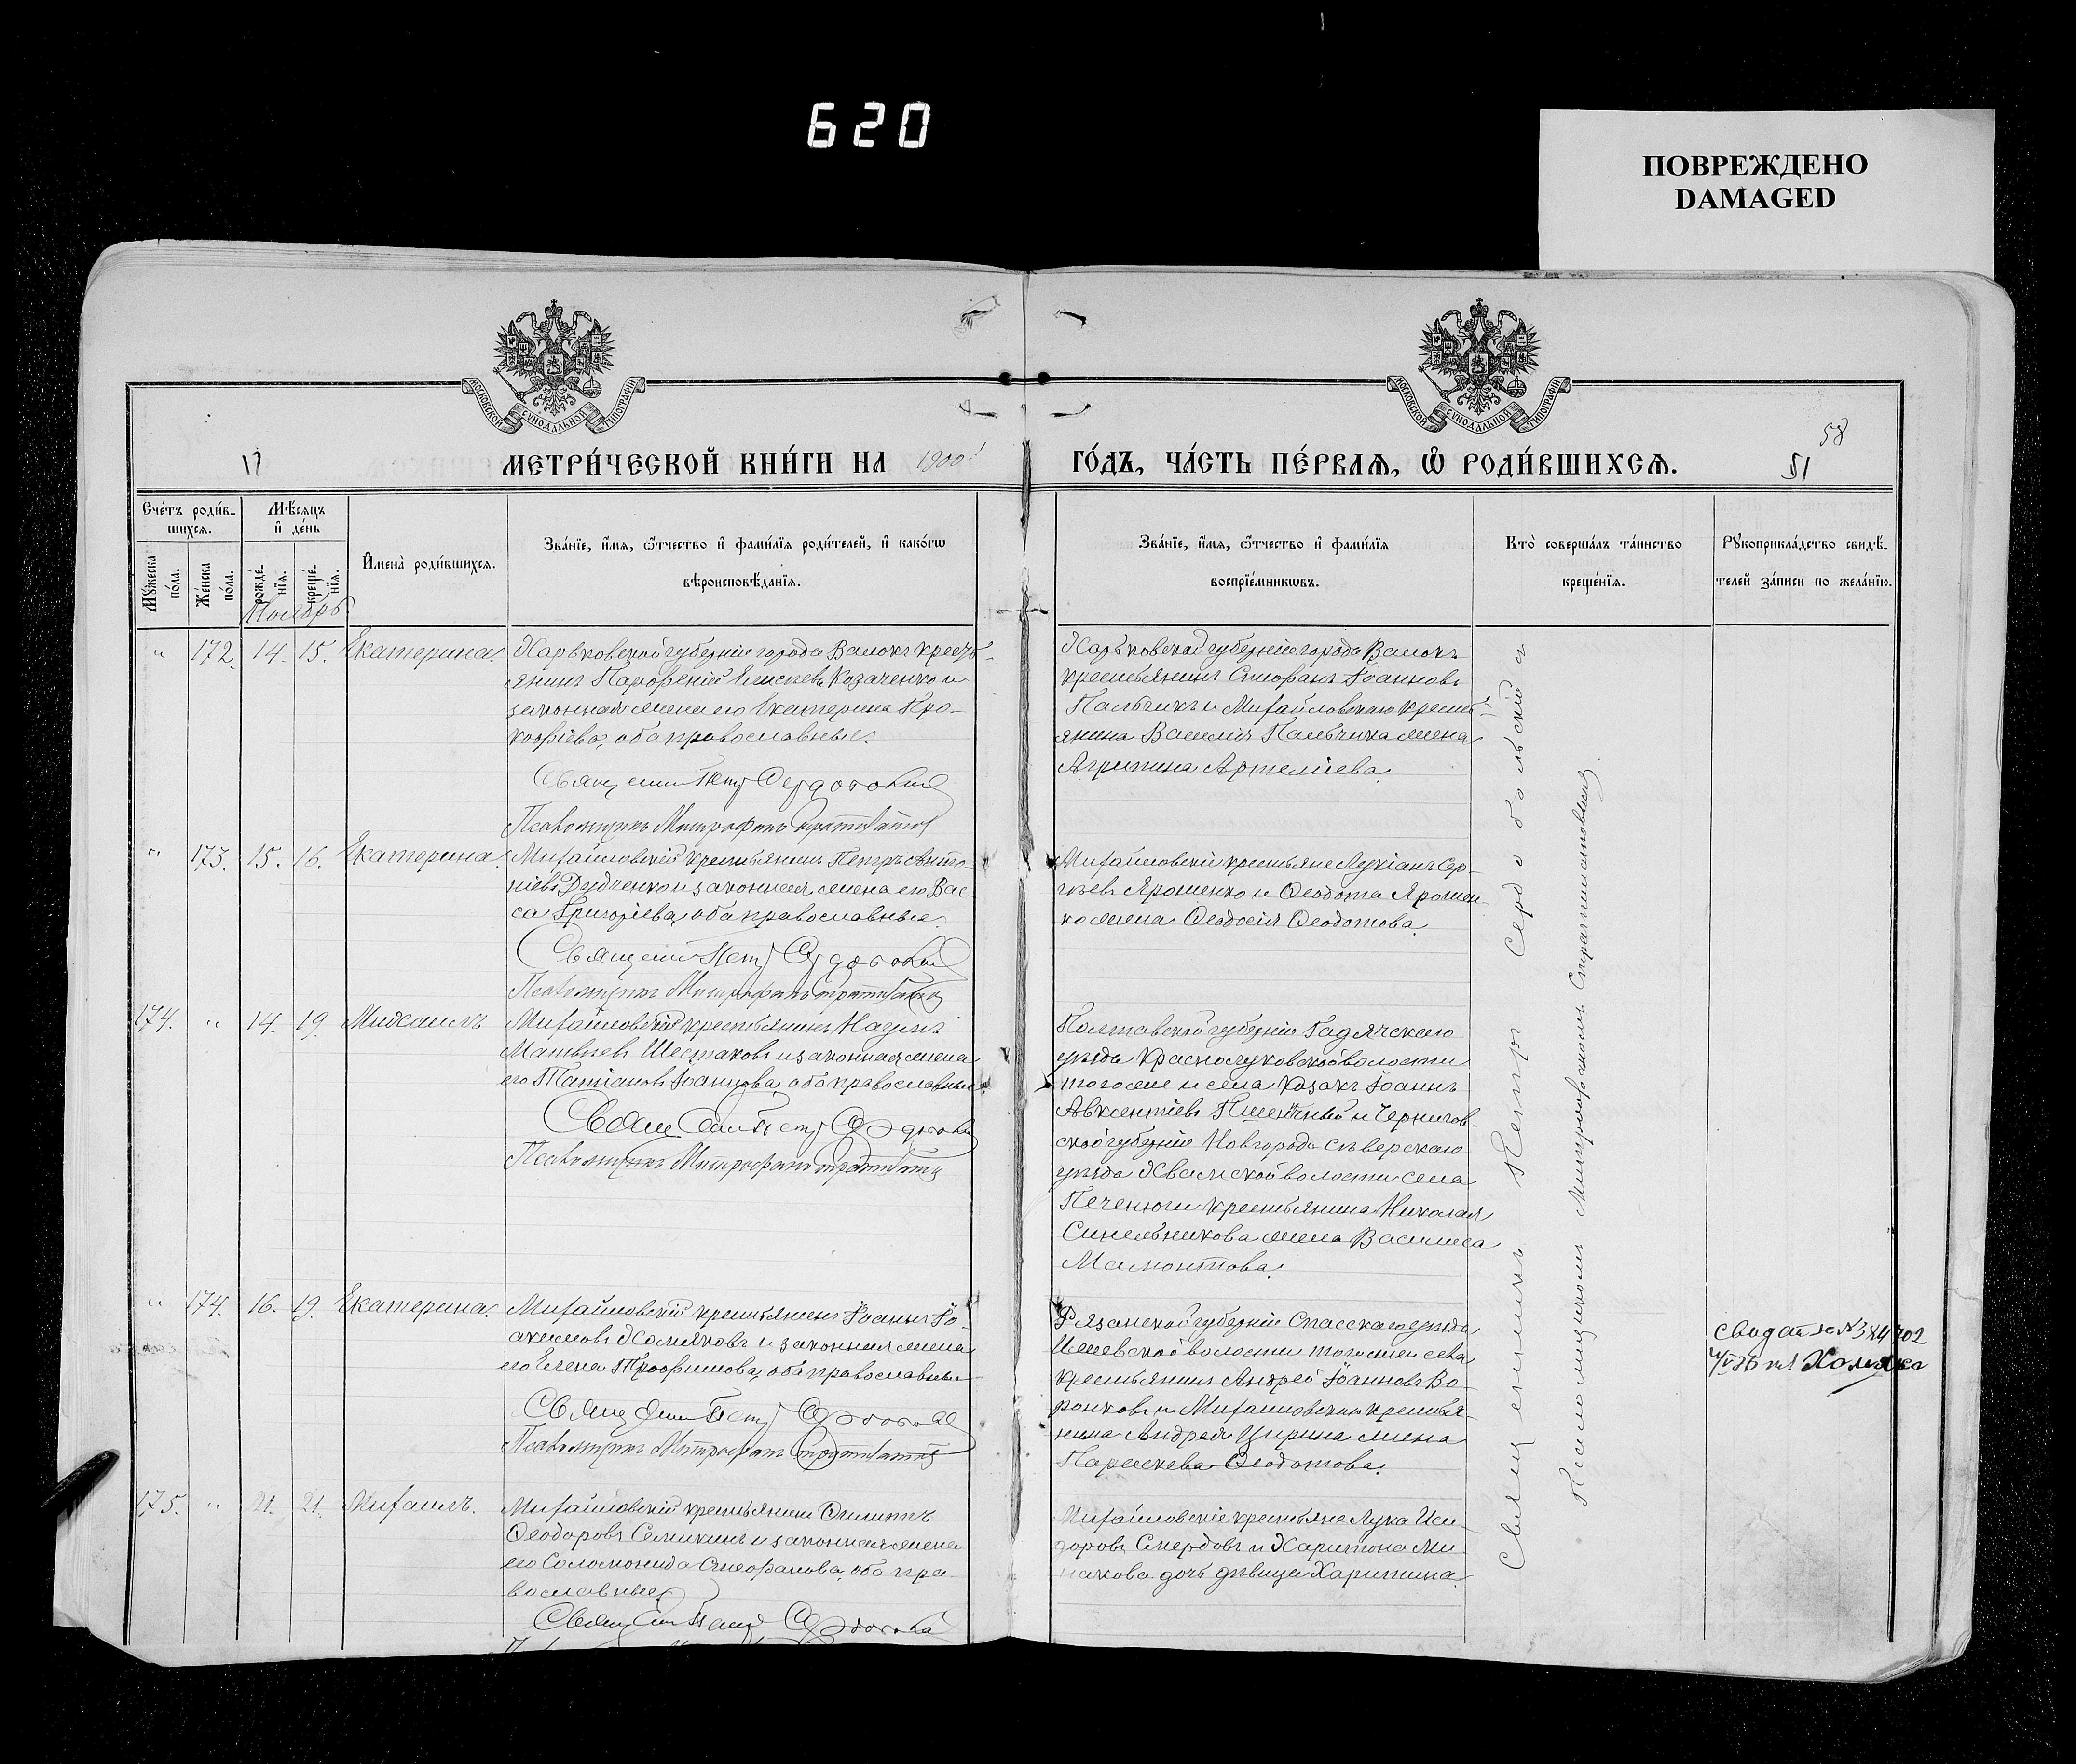 620
ПОВРЕЖДЕНО
DAMAGED
МОСКОВСКОЙ СѴНОДАЛЬНОЙ ТИПОГРАФІИ
МОСКОВСКОЙ СѴНОДАЛЬНОЙ ТИПОГРАФІИ
58
17
МЕТРИ́ЧЕСКОЙ КНИ́ГИ НА 1900
ГО́ДЪ, ЧА́СТЬ ПЕ́РВАѦ, Ѡ РОДИ́ВШИХСѦ.
51
Сче́тъ роди́в-
шихсѧ.
Мꙋ́жеска по́ла.
Же́нска по́ла.
Мѣ́сѧцъ
и҆ де́нь
рожде́-
нїѧ.
креще́-
нїѧ.
Ноябрь
И҆мена̀ роди́вшихсѧ.
Зва́нїе, и҆́мѧ, ѻ҆́тчество и҆ фами́лїѧ роди́телей, и҆ како́гѡ
вѣроисповѣ́данїѧ.
Зва́нїе, и҆́мѧ, ѻ҆́тчество и҆ фами́лїѧ
воспрїе́мникѡвъ.
Кто̀ соверша́лъ та́инство
креще́нїѧ.
Рꙋкоприкла́дство свидѣ́-
телей за́писи по жела́нїю.
" 172. 14. 15. Екатерина.
Харьковской губерніи города Валокъ крест-
янинъ Парфеній Елисѣевъ Козаченко и
законная жена его Екатерина Про-
кофіева, оба православные.
Священникъ Петръ Сердобольскій
Псаломщикъ Митрофанъ
Харьковской губерніи города Валокъ
крестьянинъ Стефанъ Іоанновъ
Пальчикъ и Михайловскаго крест-
янина Василія Пальчика жена
Агрипина Артеміева.
" 173. 15. 16. Екатерина.
Михайловскій крестьянинъ Петръ Анто-
ніевъ Дудченко и законная жена его Вас-
са Григоріева, оба православные.
Священникъ Петръ Сердобольскій
Псаломщикъ Митрофанъ
Михайловскіе крестьяне Лукіанъ Сер-
гѣевъ Ярошенко и Ѳеодота Ярошен-
ко жена Ѳеодосія Ѳеодотова.
174. " 14. 19. Михаилъ
Михайловскій крестьянинъ Наумъ
Матвѣевъ Шестаковъ и законная жена
его Татіана Іоаннова, оба православные.
Священникъ Петръ Сердобольскій
Псаломщикъ Митрофанъ
Полтавской губерніи Гадячскаго
уѣзда Краснолуковской волости
того же и села козакъ Іоаннъ
Авксентіевъ Пшеничный и Чернигов-
ской губерніи Новгородъ сѣверскаго
уѣзда волости села
Печенюги крестьянина Николая
Синельникова жена Василиса
Мамонтова.
" 174. 16. 19. Екатерина.
Михайловскій крестьянинъ Іоаннъ Іо-
акимовъ Хомяковъ и законная жена
его Елена Трофимова, оба православные
Священникъ Петръ Сердобольскій
Псаломщикъ Митрофанъ
Рязанской губерніи Спасскаго уѣзда
Ижевской волости того же села
крестьянинъ Андрей Іоанновъ Во-
ронковъ и Михайловскаго крестья-
нина Андрея Цирина жена
Параскева Ѳеодотова.
Хомяко
175. " 21. 21. Михаилъ.
Михайловскій крестьянинъ Филиппъ
Ѳеодоровъ Селикинъ и законная жена
его Соломонида Стефанова, оба пра-
вославные.
Михайловскіе крестьяне Лука Иси-
доровъ Смердовъ и Харитона Ми-
накова дочь дѣвица Харитина.
Священникъ Петръ Сердобольскій и
Псаломщикомъ Митрофаномъ